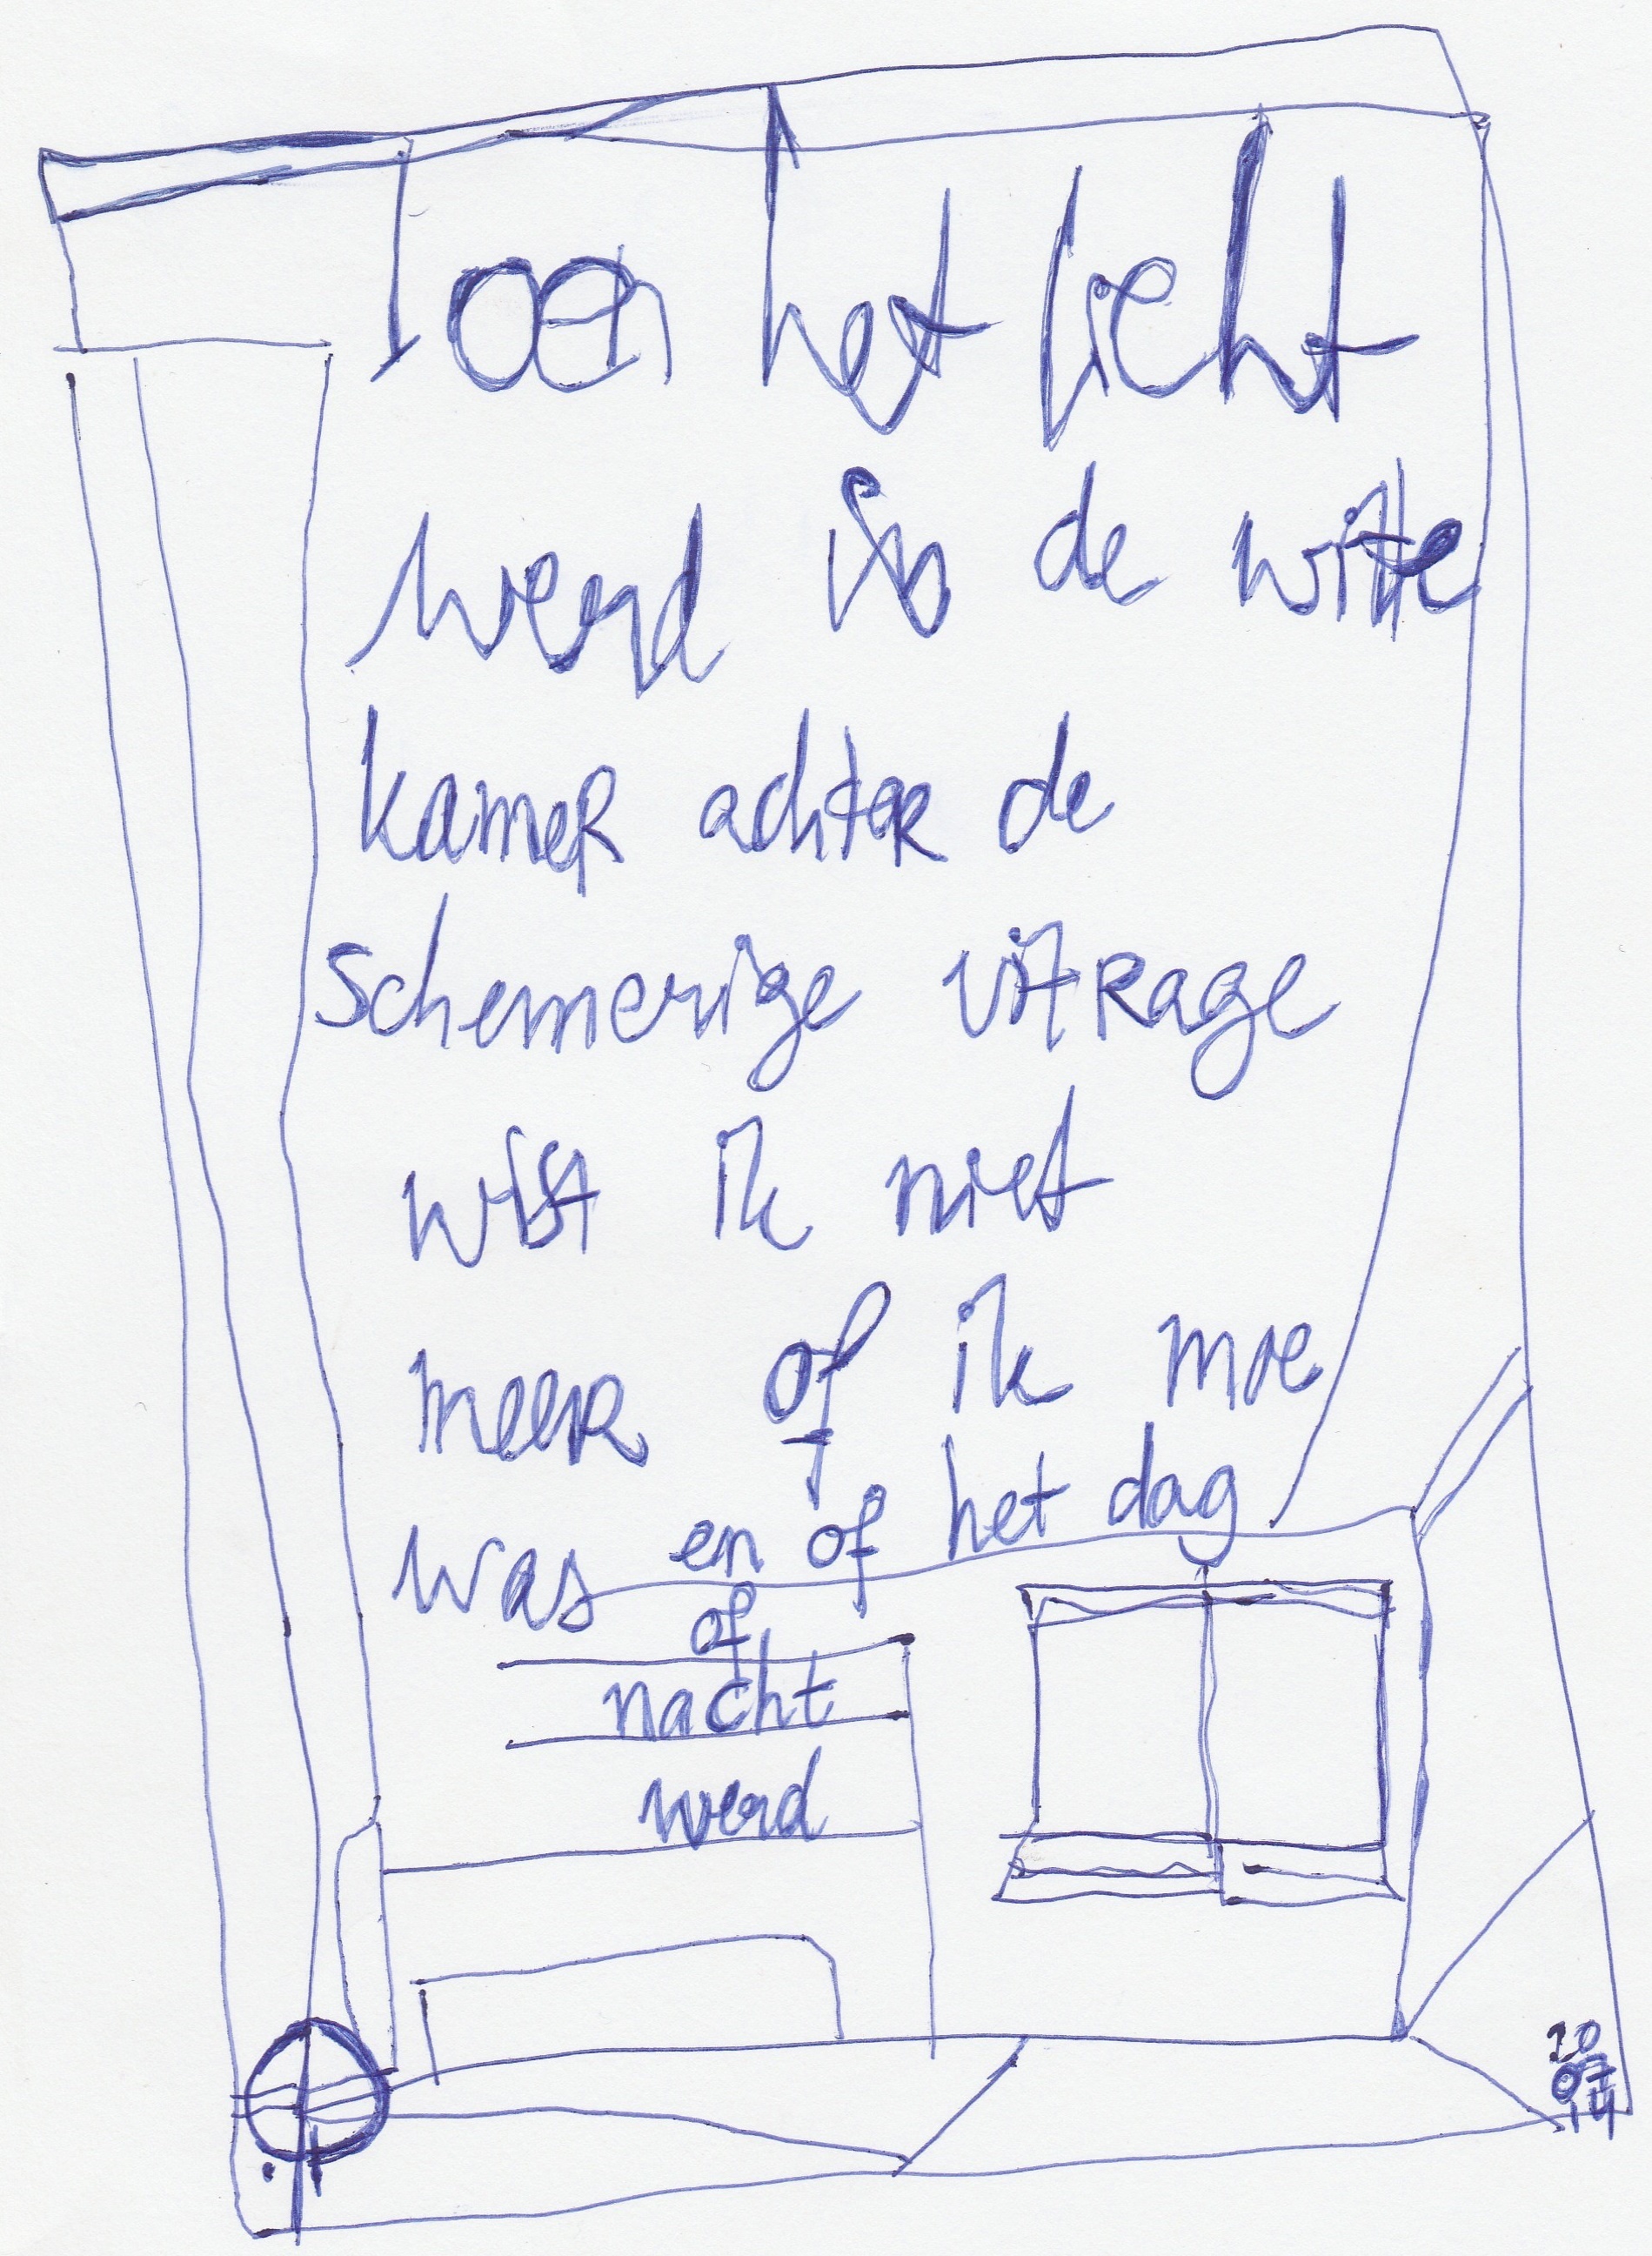 Toen het licht
werd in de witte
kamer achter de
schemerige vitrage
wist ik niet
meer of ik moe
was en of het dag
of
nacht
werd
20
07
14